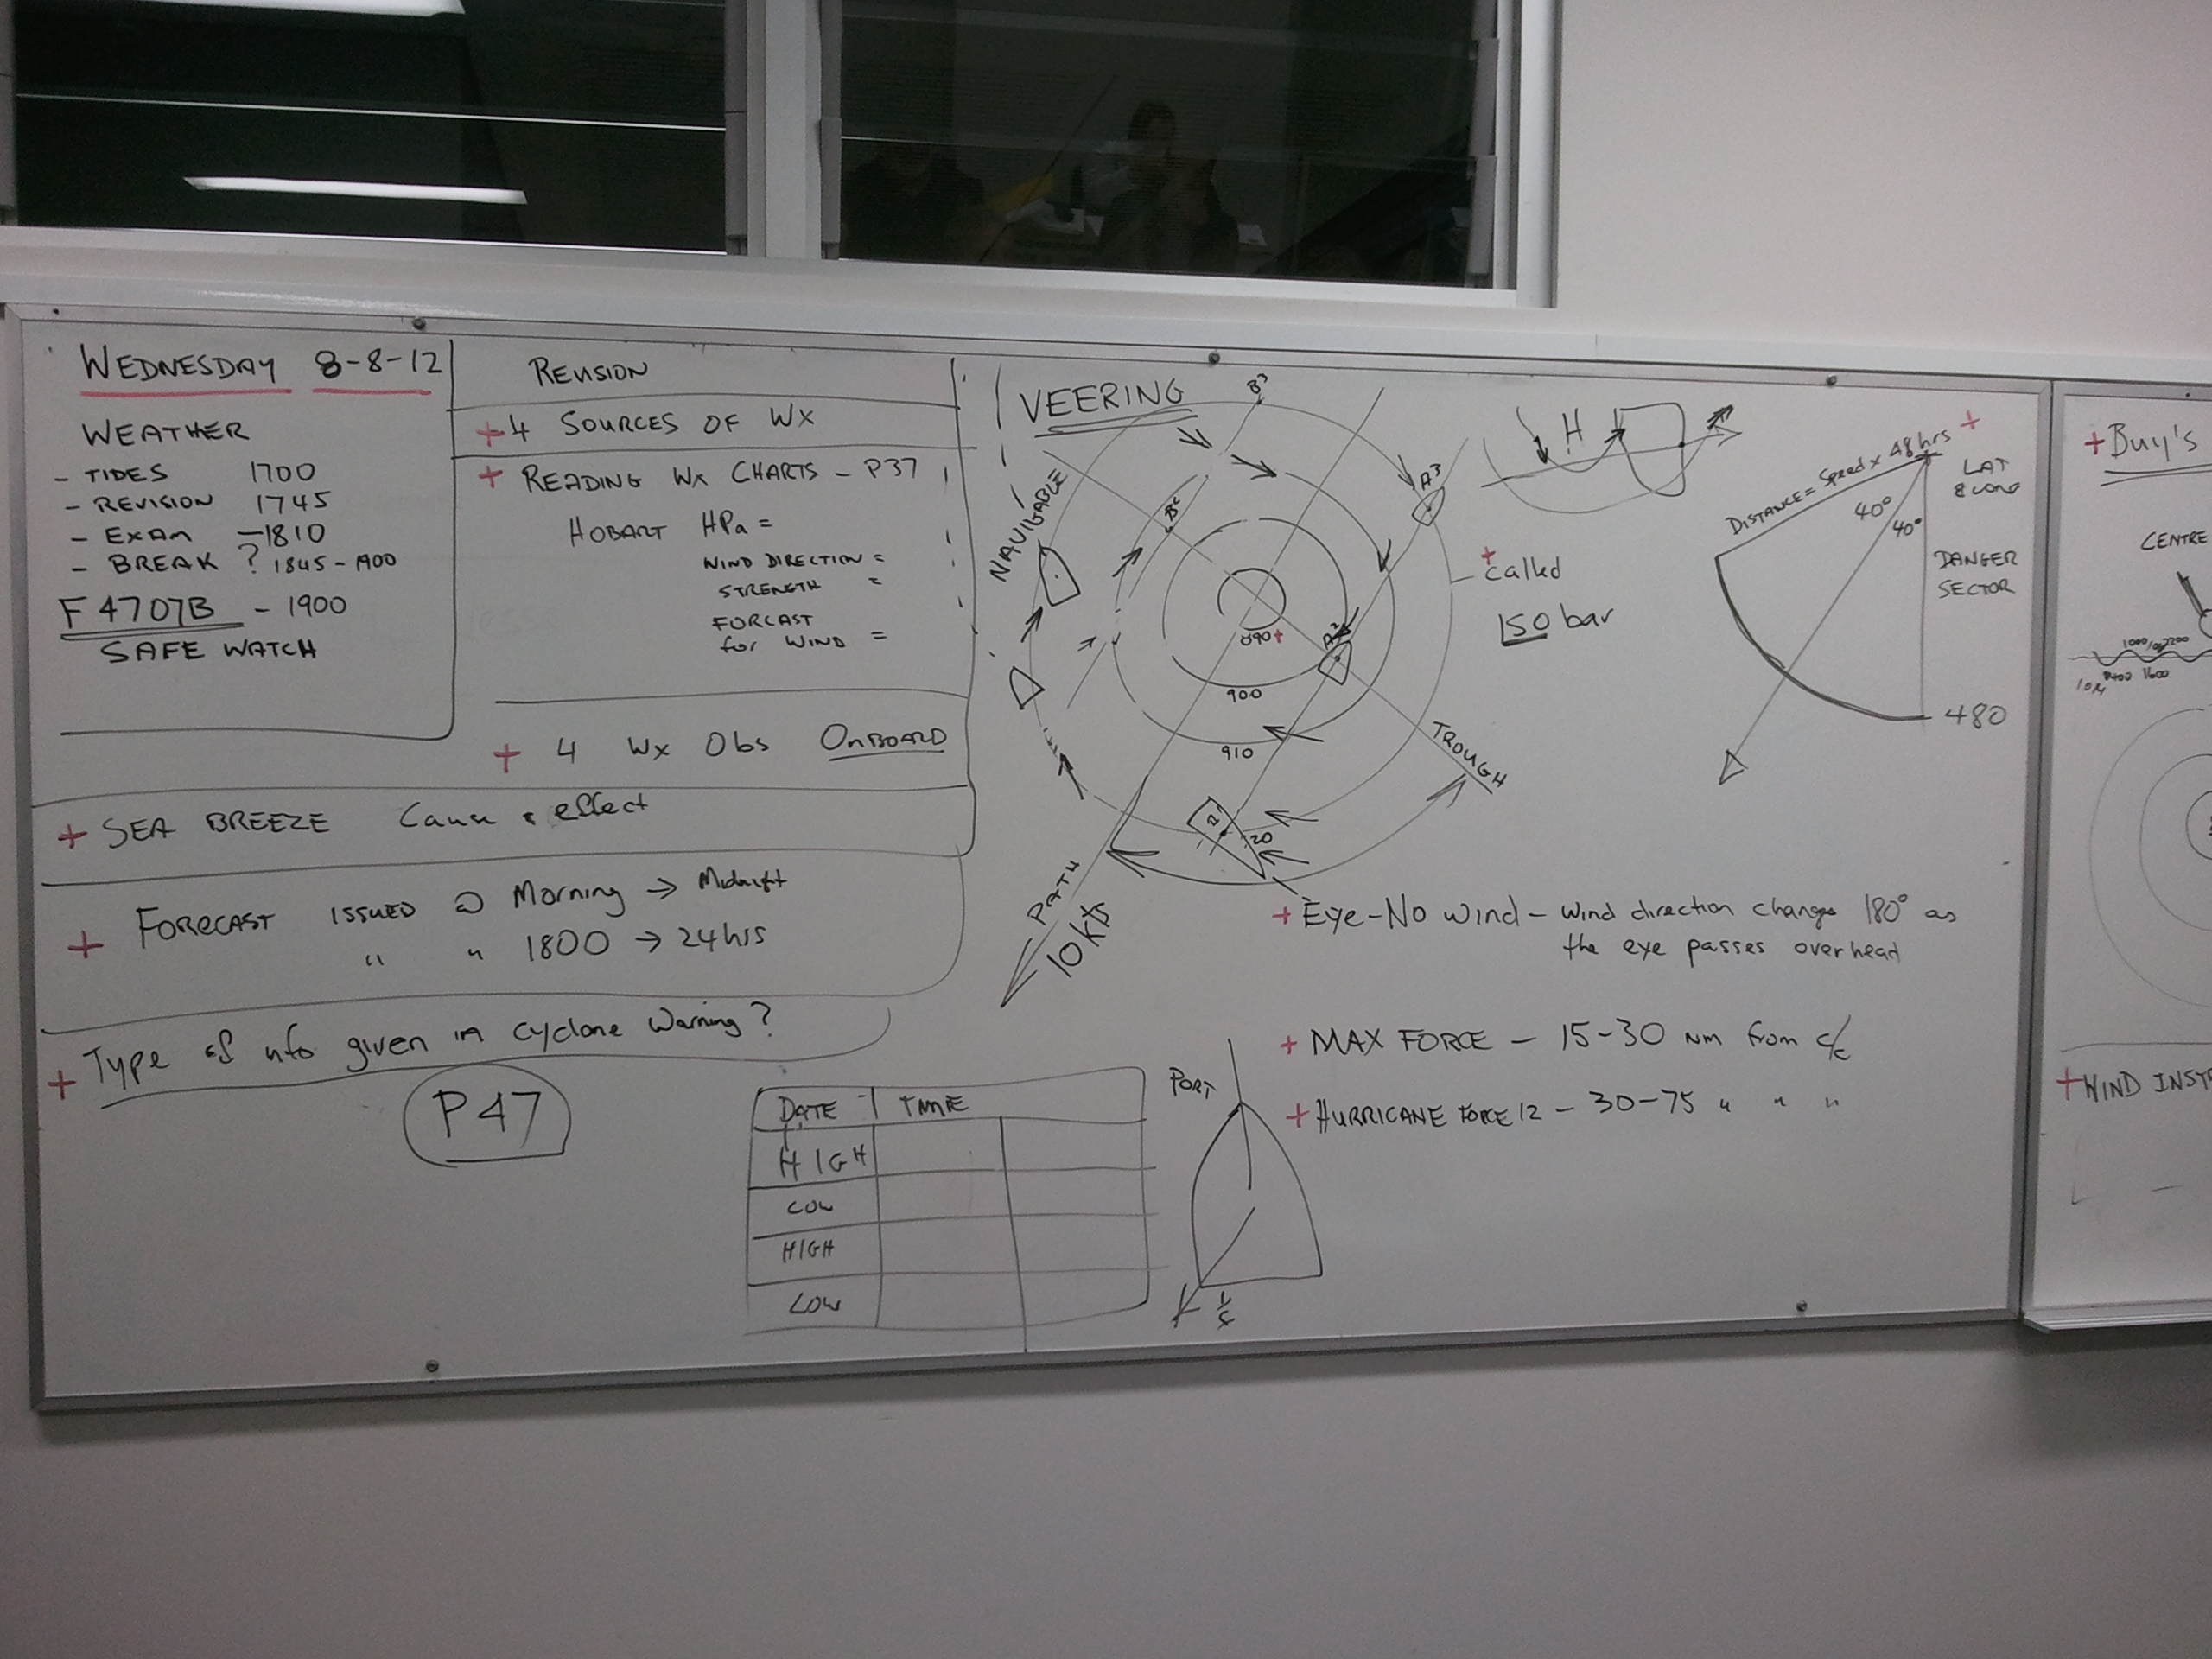 WEDNESDAY 8-8-12
WEATHER
- TIDES 1700
- REVISION 1745
- EXAM -1810
- BREAK ? 1845-1900
F4707B - 1900
SAFE WATCH
REVISION
+ 4 SOURCES OF WX
+ READING WX CHARTS - P37
HOBART HPa =
WIND DIRECTION =
STRENGTH =
FORCAST
for WIND =
+ 4 Wx Obs ONBOARD
+ SEA BREEZE Cause & effect
+ FORECAST ISSUED @ Morning → Midnight
" " 1800 → 24hrs
+ Type of info given in cyclone Warning?
P47
DATE TIME
HIGH
LOW
HIGH
LOW
VEERING
NAVIGABLE
B3
A3
A2
890+
900
910
20
TROUGH
PATH
10 kts
H
+ called
150 bar
DISTANCE = Speed x 48hrs +
LAT
& LONG
40°
40°
DANGER
SECTOR
480
+ Eye - No wind - wind direction changes 180° as
the eye passes overhead
+ MAX FORCE - 15-30 NM from c/c
+ HURRICANE FORCE 12 - 30-75 " " "
PORT
+ Buy's
CENTRE
1600
+ WIND INST